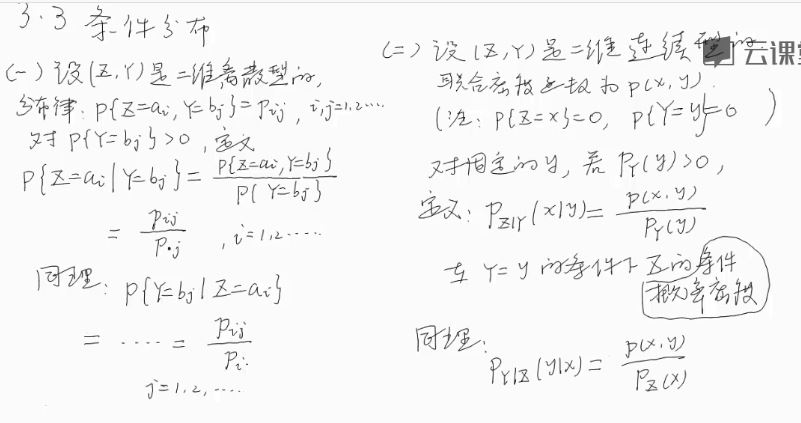 3.3 条件分布
(一) 设(X,Y)是二维离散型的,
分布律: P{X=ai, Y=bj}=Pij, i,j=1,2...
对 P{Y=bj}>0, 定义
P{X=ai|Y=bj} = P{X=ai,Y=bj} / P{Y=bj}
= Pij / P·j , i=1,2......
同理: P{Y=bj|X=ai}
= ····· = Pij / Pi·
j=1,2,....
(二) 设(X,Y)是二维连续型的
联合密度函数为 p(x,y).
(注: P{X=x}=0, P{Y=y}=0 )
对固定的y, 若 PY(y)>0,
定义: PX|Y(x|y) = p(x,y) / PY(y)
在 Y=y 的条件下 X的条件
概率密度
同理:
PY|X(y|x) = p(x,y) / PX(x)
云课堂